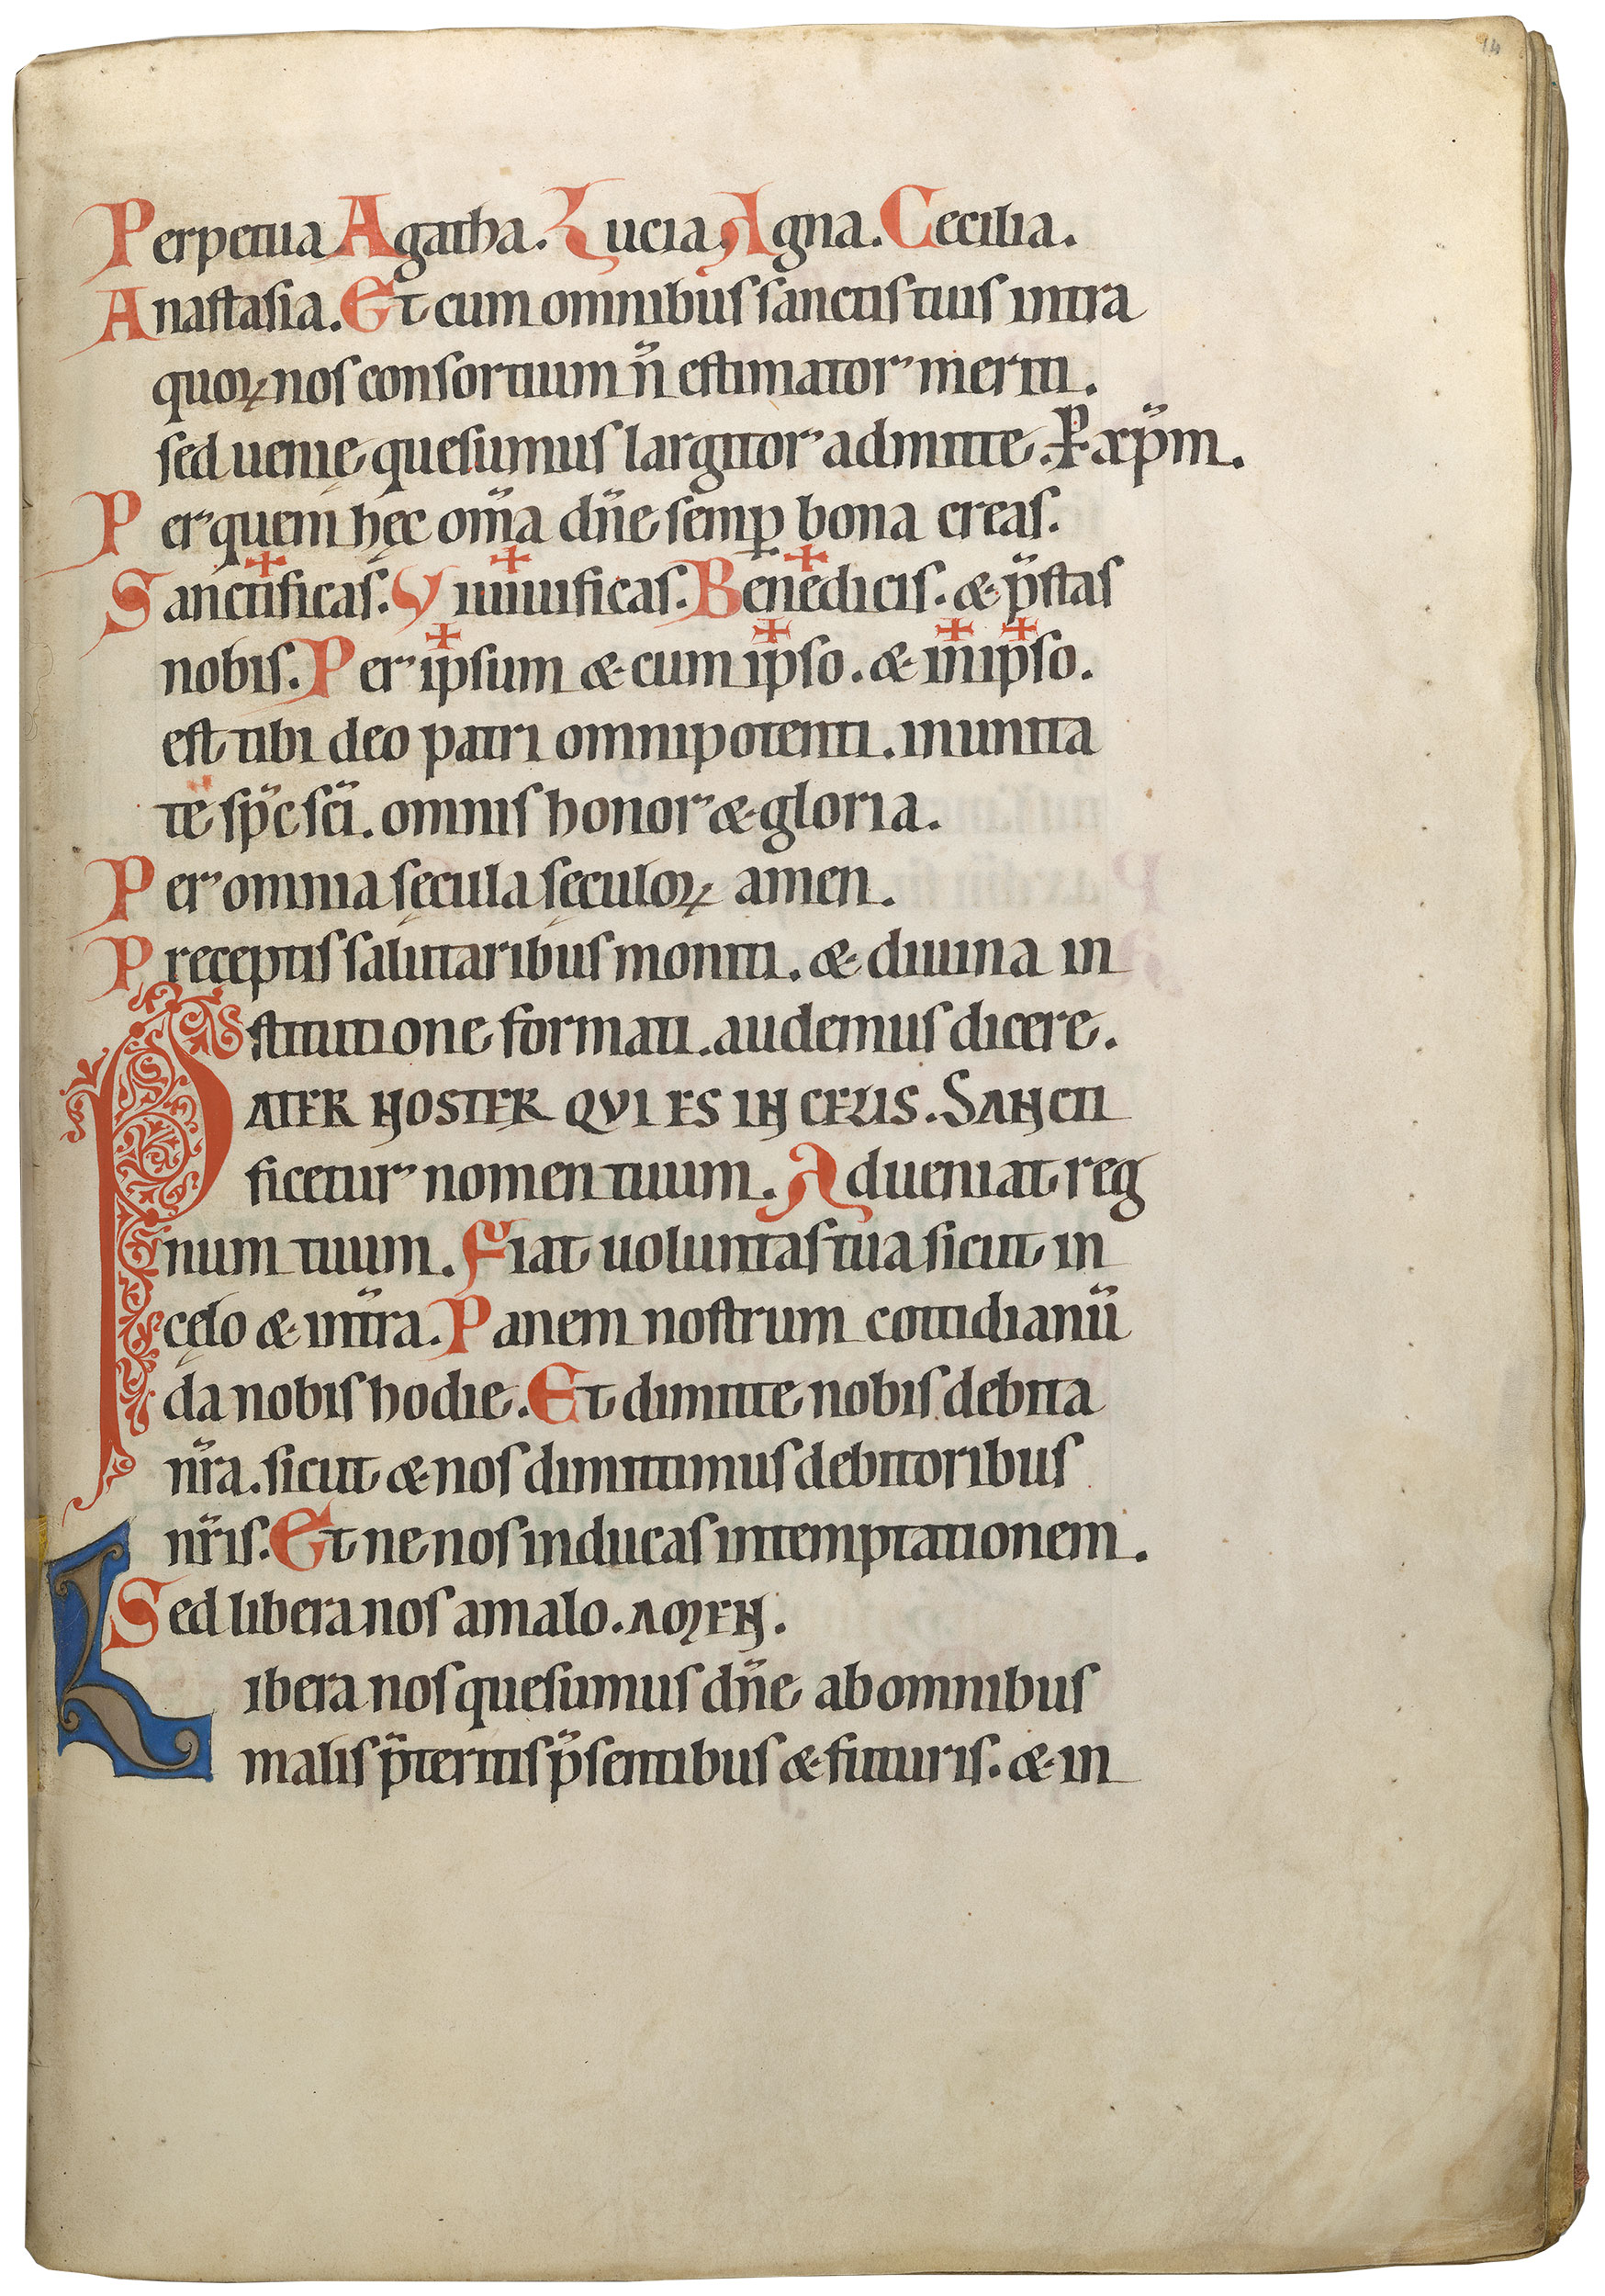 14
Perpetua Agatha. Lucia. Agna. Cecilia.
Anastasia. Et cum omnibus sanctis tuis intra
quoꝝ nos consortium n̄ estimator meriti.
sed uenię quesumus largitor admitte. P̲ xp̄m.
Per quem hęc om̄a dn̄e semꝑ bona creas.
Sancti✝ficas. Viui✝ficas. Bene✝dicis. & p̄stas
nobis. Per ip✝sum & cum ip✝so. & in✝ ip✝so.
est tibi deo patri omnipotenti. in unita
te sp̄c sc̄i. omnis honor & gloria.
Per omnia sęcula sęculoꝝ amen.
Preceptis salutaribus moniti. & diuina in
stitutione formati. audemus dicere.
PATER NOSTER QVI ES IN CELIS. SANCTI
ficetur nomen tuum. Adueniat reg
num tuum. Fiat uoluntas tua sicut in
cęlo & in t̄ra. Panem nostrum cottidianū
da nobis hodie. Et dimitte nobis debita
nr̄a. sicut & nos dimittimus debitoribus
nr̄is. Et ne nos inducas in temptationem.
Sed libera nos a malo. AMEN.
Libera nos quesumus dn̄e ab omnibus
malis p̄teritis p̄sentibus & futuris. & in